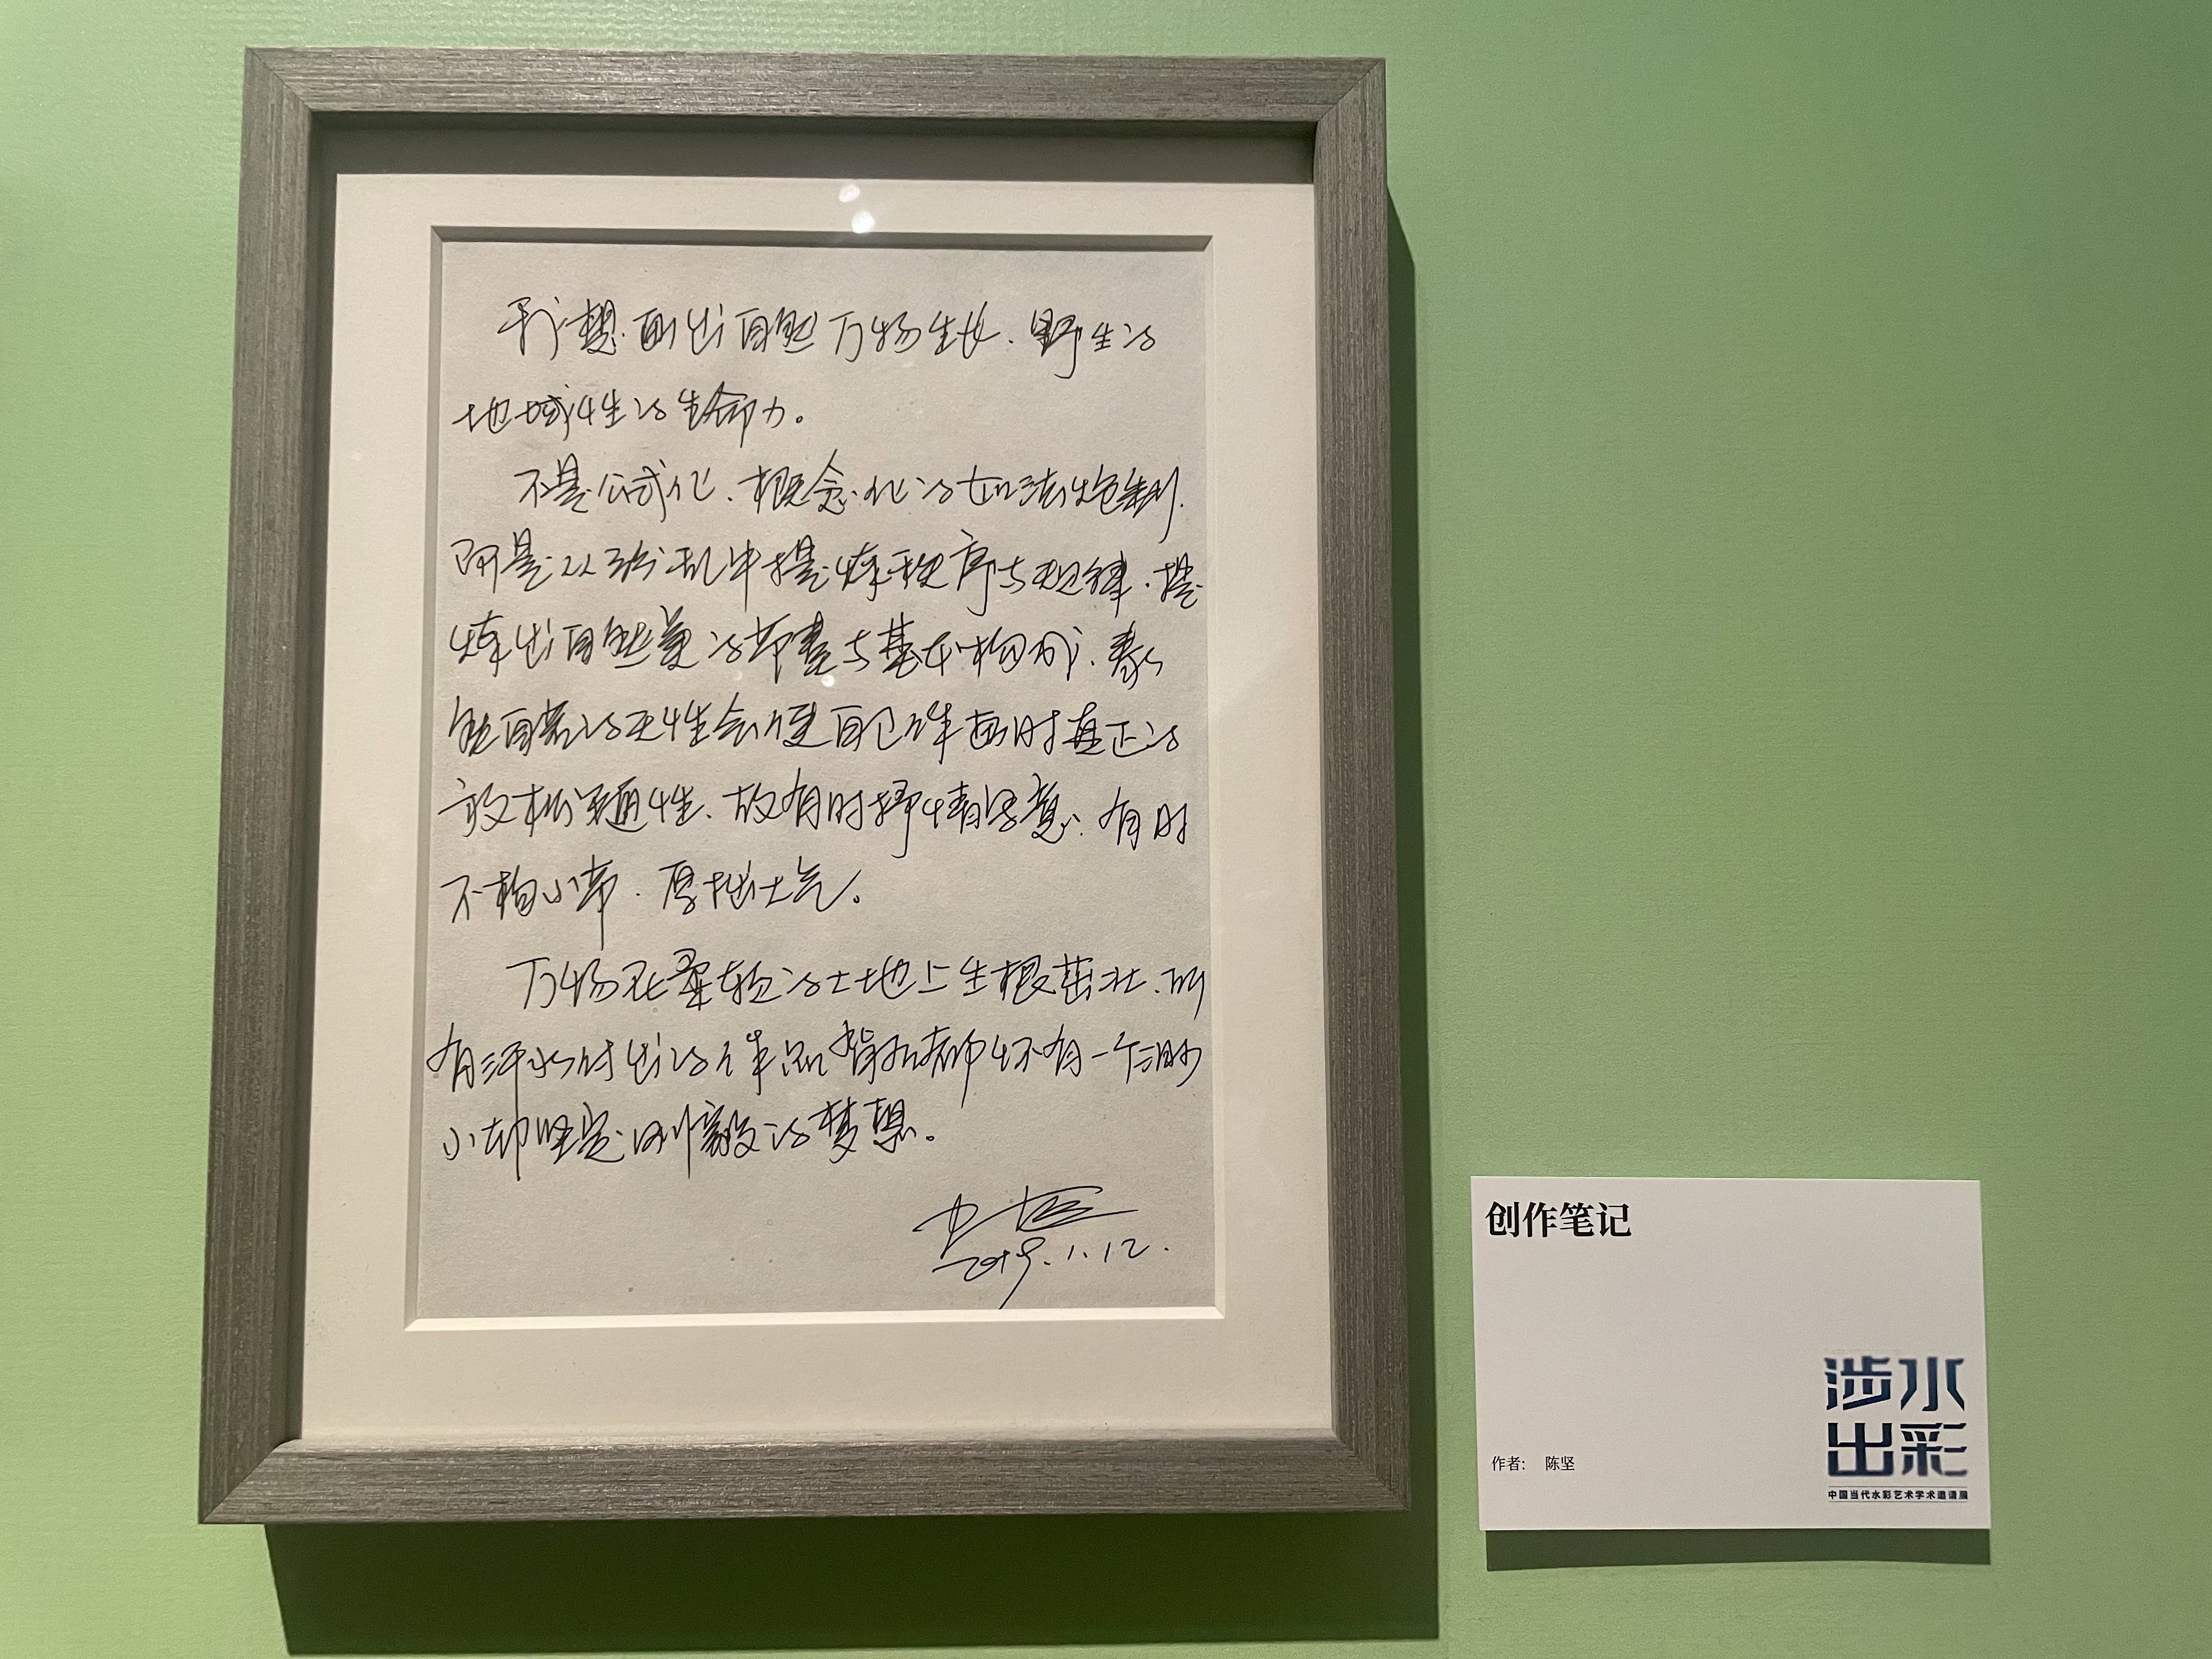 我想画出自然万物生长、野生的
地域性的生命力。
不是公式化、概念化的如法炮制,
而是从纷乱中提炼秩序与规律,提
炼出自然美的节奏与基本构成、泰
然自若的天性会使自己作画时真正的
放松通性、故有时抒情写意、有时
不拘小节、厚拙大气。
万物在柔软的土地上生根茁壮、所
有汗水付出的作品背后都怀有一个渺
小却坚定刚毅的梦想。
2019.1.12.
创作笔记
作者: 陈坚
涉水
出彩
中国当代水彩艺术学术邀请展